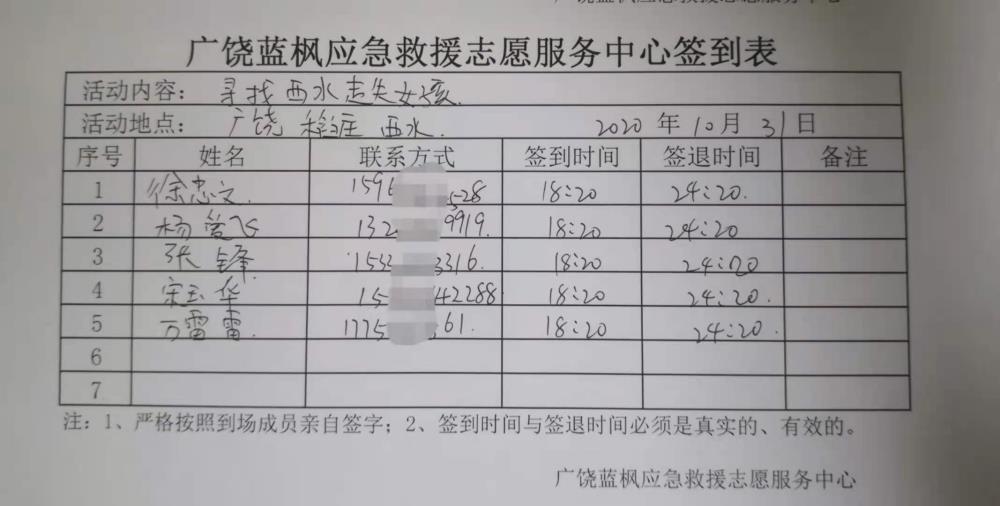 广饶蓝枫应急救援志愿服务中心签到表
活动内容: 寻找西水走失女孩.
活动地点: 广饶 稻庄 西水. 2020 年 10 月 31 日
序号 姓名 联系方式 签到时间 签退时间 备注
1 徐忠文. 159 528 18:20 24:20.
2 杨 飞 132 9919. 18:20 24:20
3 张锋. 153 3316. 18:20 24:20
4 宋玉华 15 42288 18:20 24:20.
5 万雷雷. 1775 61. 18:20 24:20.
6
7
注: 1、严格按照到场成员亲自签字; 2、签到时间与签退时间必须是真实的、有效的。
广饶蓝枫应急救援志愿服务中心